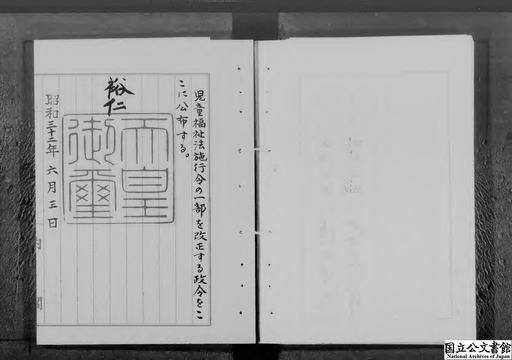 児童福祉法施行令の一部を改正する政令をこ
こに公布する。
裕仁
天皇
御璽
昭和三十二年六月三日
内閣
国立公文書館
National Archives of Japan